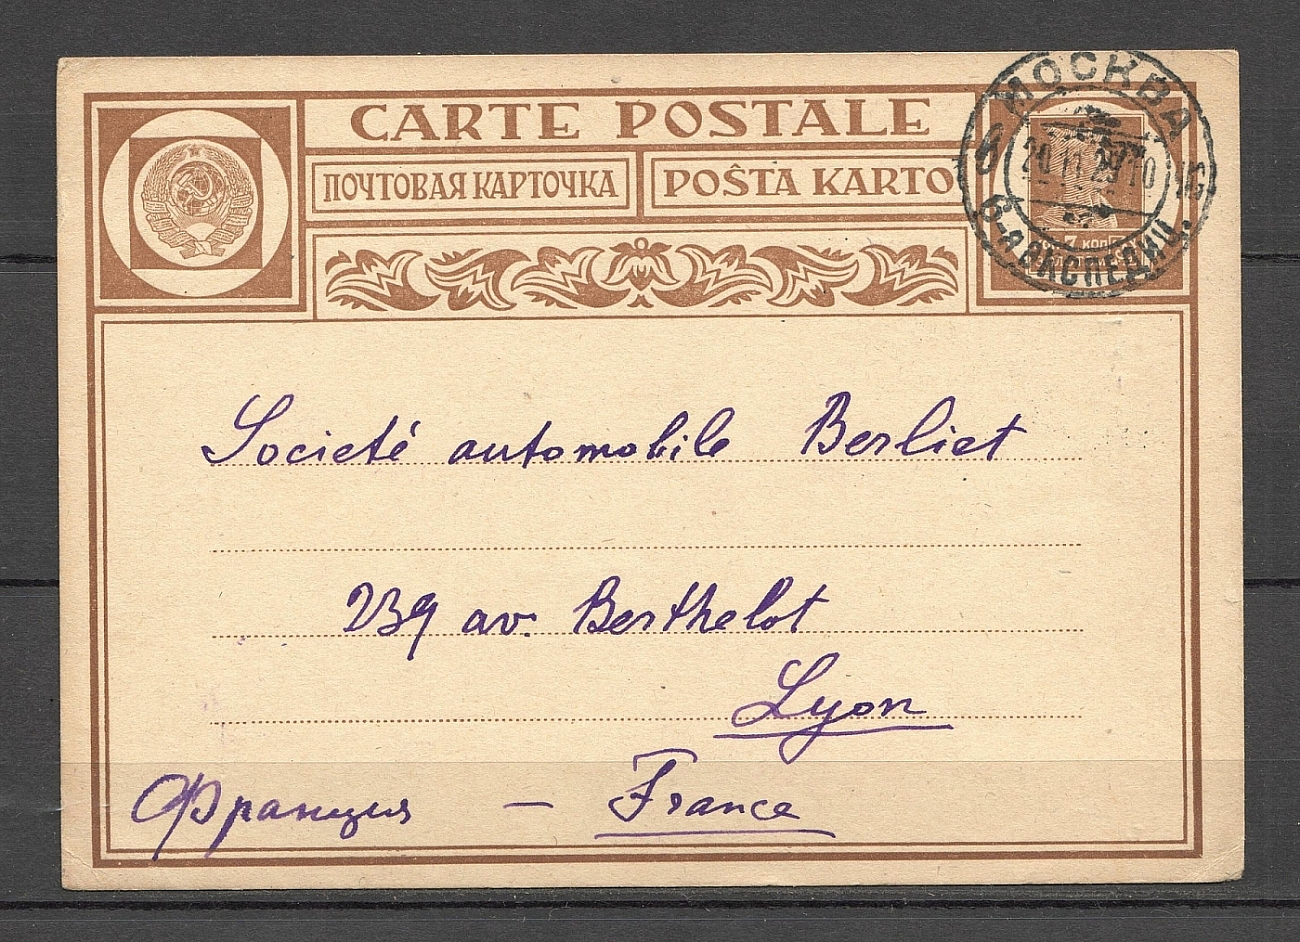 CARTE POSTALE
ПОЧТОВАЯ КАРТОЧКА
POŜTA KARTO
МОСКВА
6-я ЭКСПЕДИЦ.
7 КОП
Societé automobile Berliet
239 av. Berthelot
Lyon
Франция — France